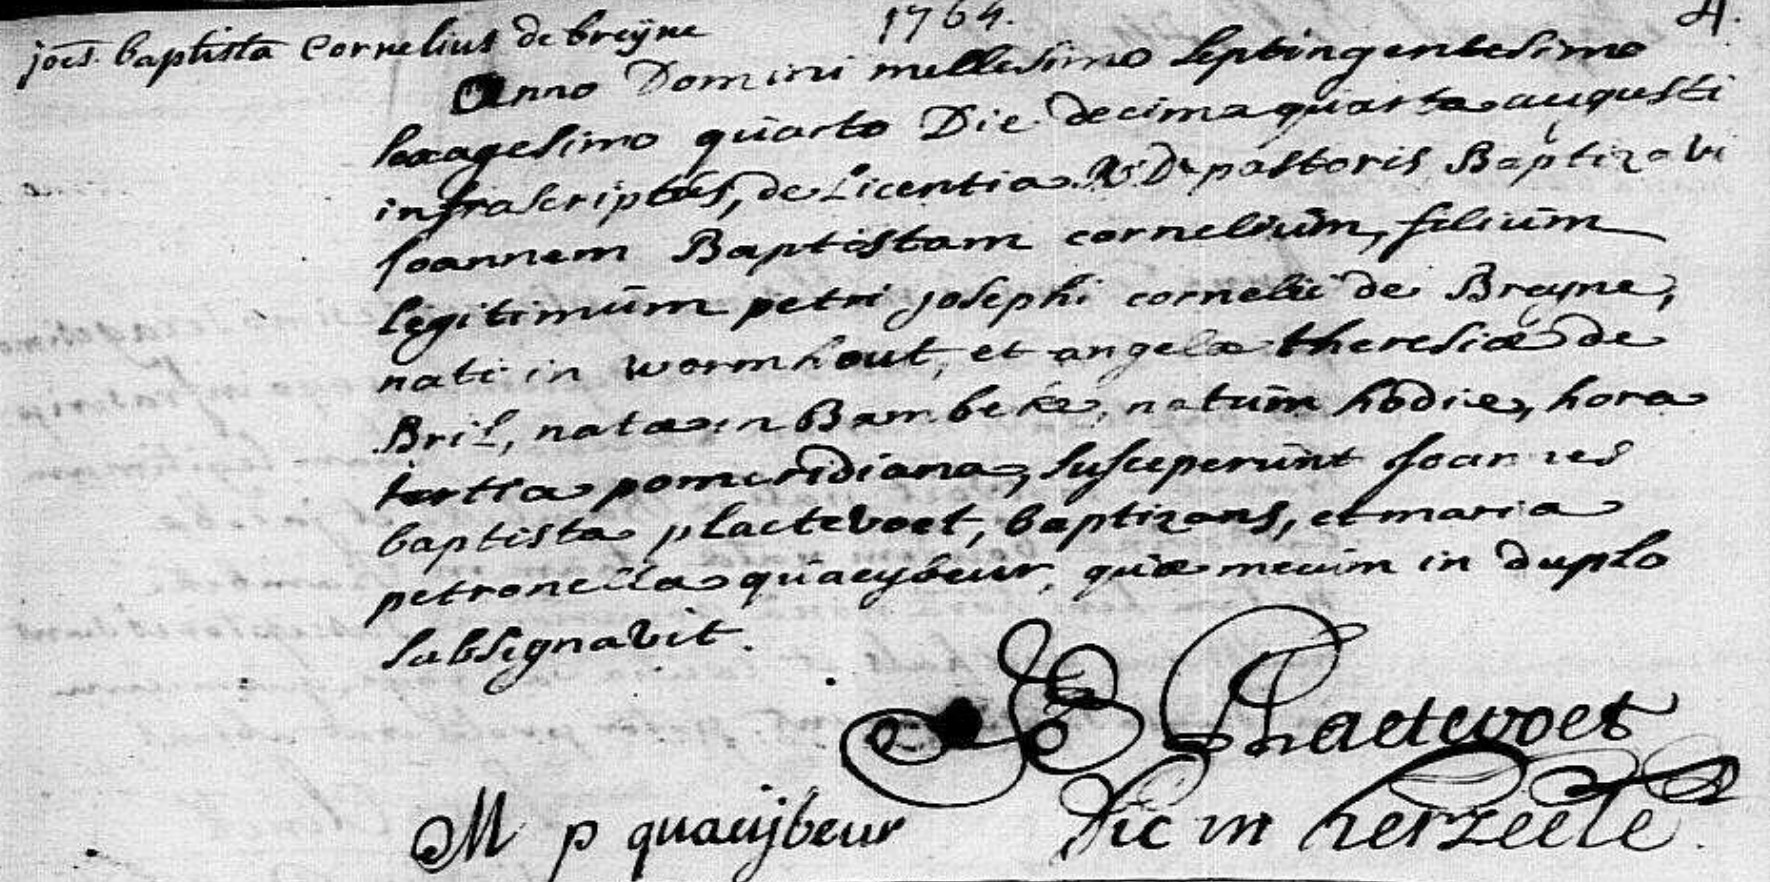 1764.
4.
joes baptista Cornelius de breÿne
Anno Domini millesimo septingentesimo
sexagesimo quarto Die decima quarta augusti
infrascriptus, de Licentia R. D. pastoris Baptizavi
Joannem Baptistam cornelium, filium
legitimum petri josephi cornelii de Breyne,
nati in wormhout, et angelæ theresiæ de
Bril, natæ in Bambeke, natum hodie, hora
tertia pomeridiana, susceperunt Joannes
baptista plactevoet, baptizans, et maria
petronella quaeybeur, quæ mecum in duplo
subsignavit.
Plaetevoet
M p quaeijbeur Vic in herzeele.